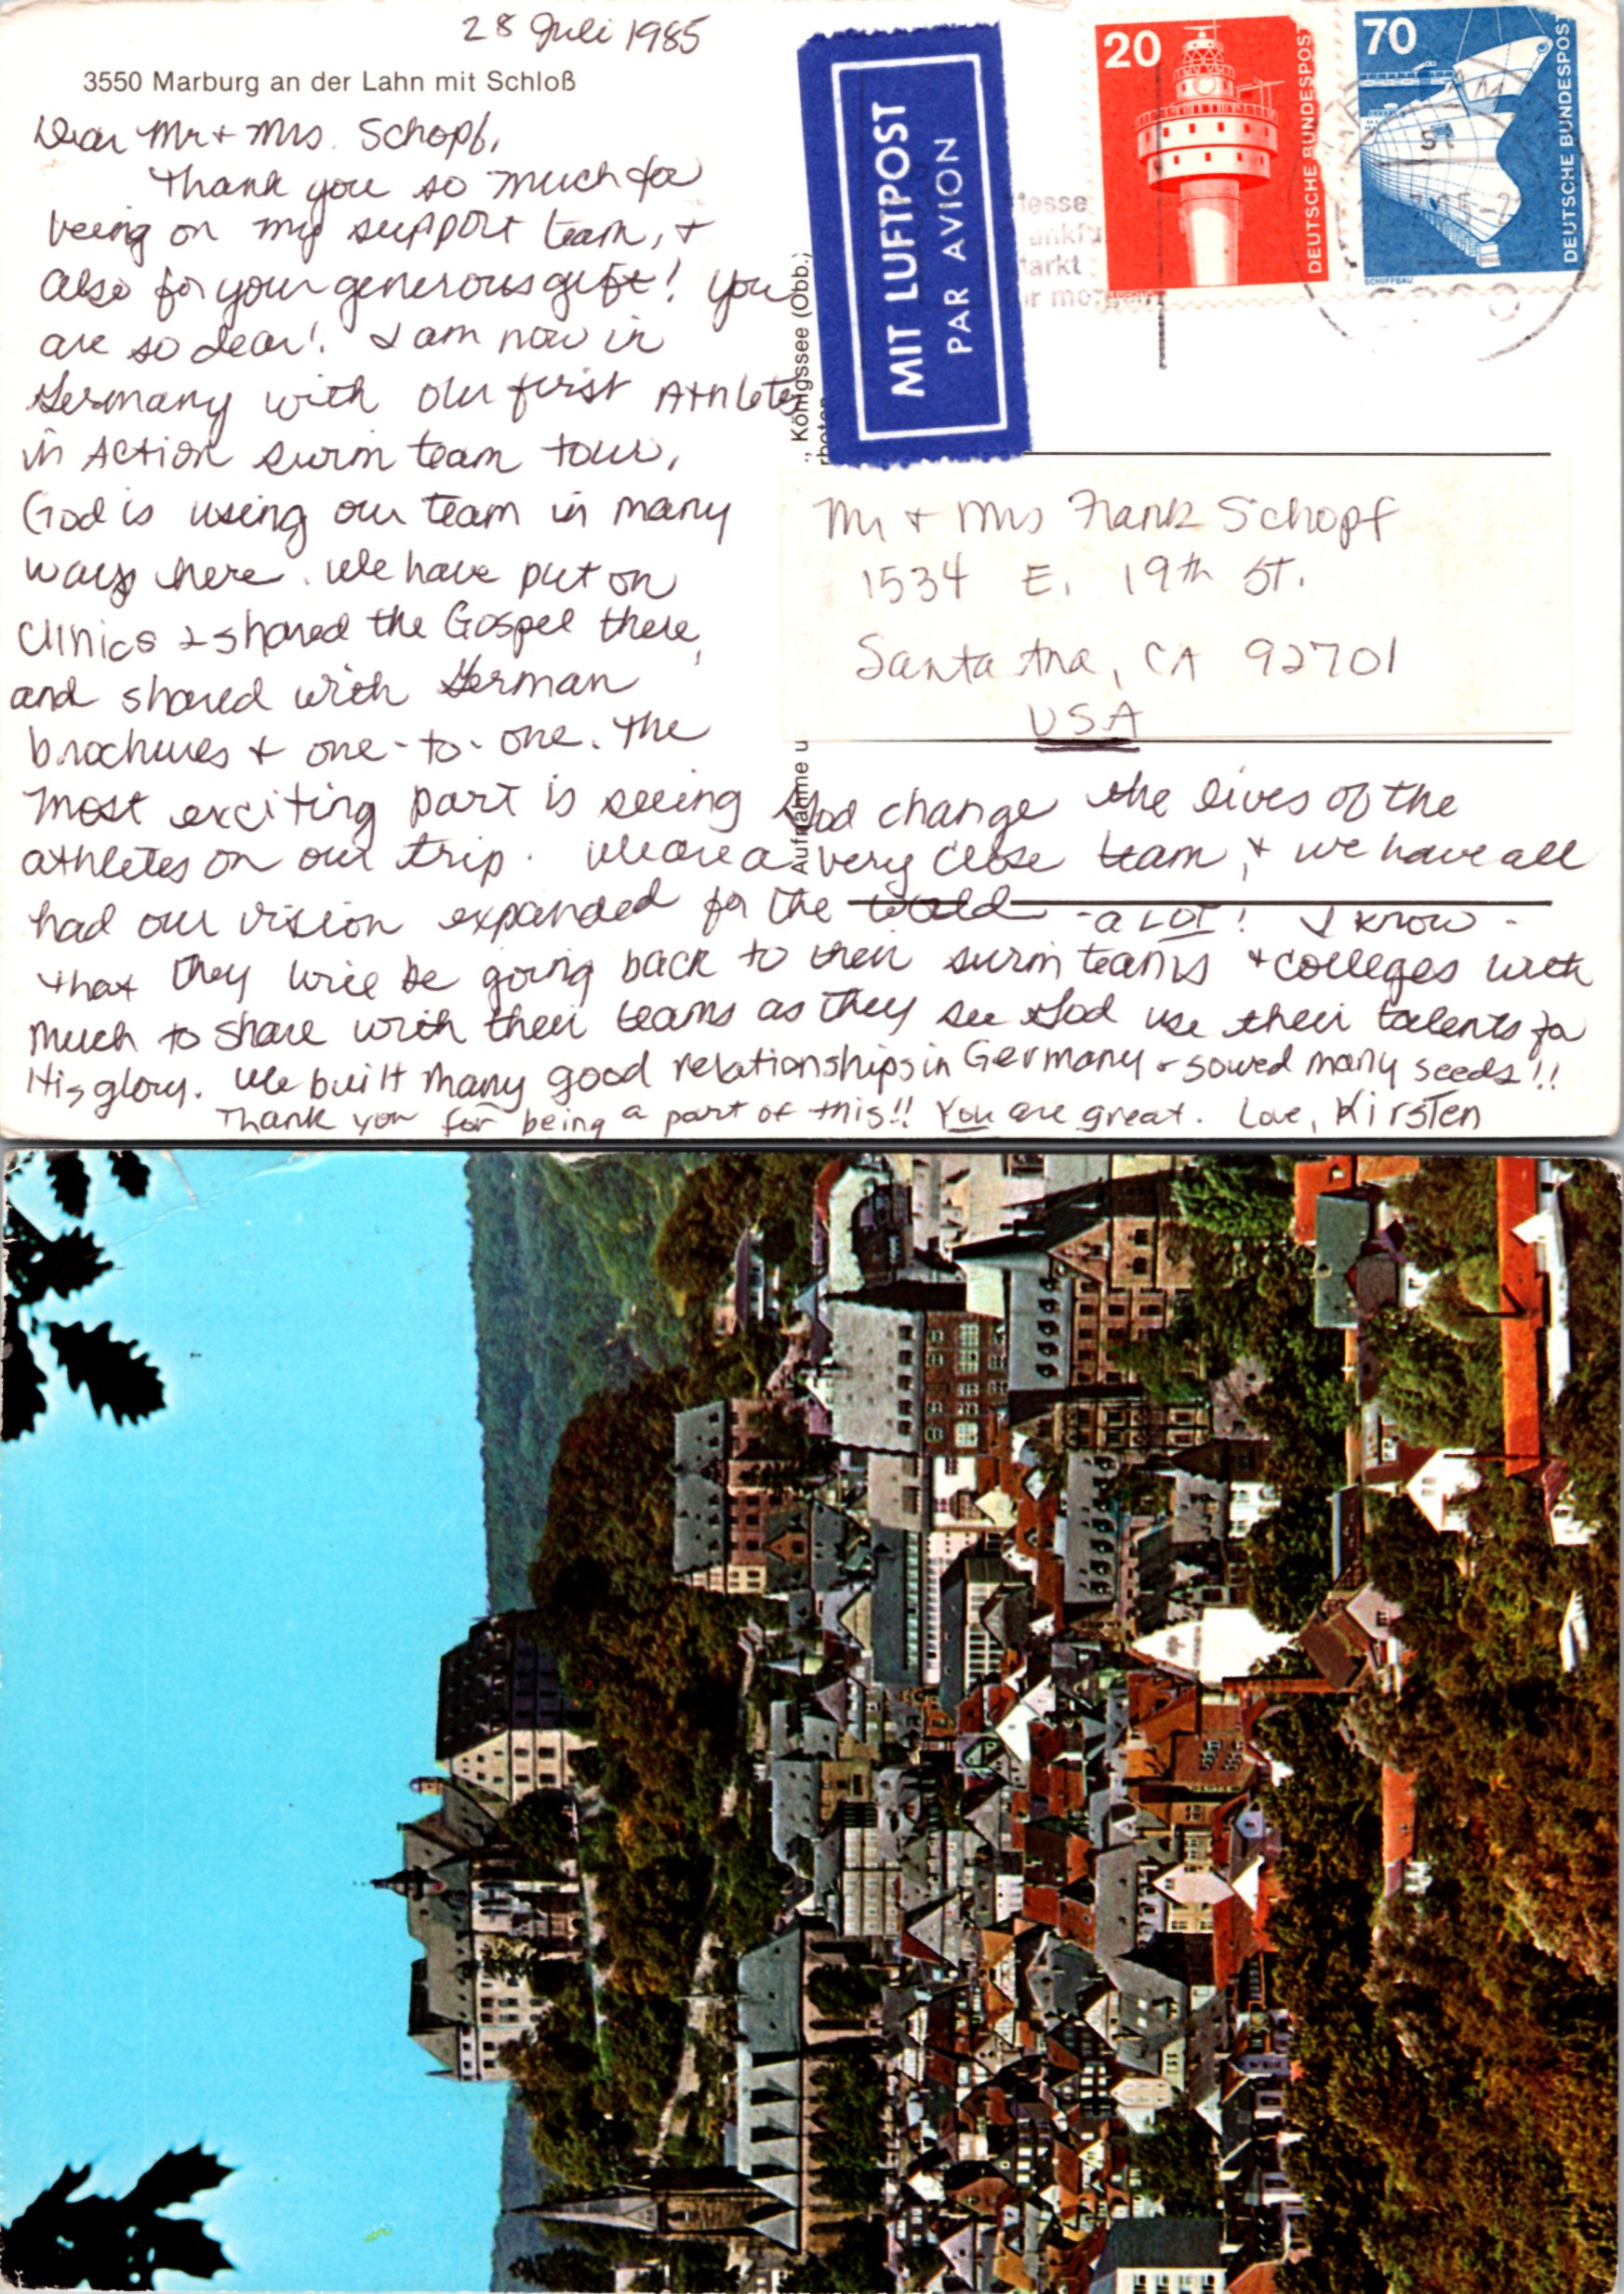 28 Juli 1985
3550 Marburg an der Lahn mit Schloß
Dear Mr + Mrs. Schopf,
Thank you so much for
being on my support team, +
also for your generous gift! You
are so dear! I am now in
Germany with our first Athletes
in Action swim team tour,
God is using our team in many
ways here. We have put on
clinics + shared the Gospel there,
and shared with German
brochures + one-to-one. The
most exciting part is seeing God change the lives of the
athletes on our trip. We are a very close team, + we have all
had our vision expanded for the world - a LOT! I know
that they will be going back to their swim teams + colleges with
much to share with their teams as they see God use their talents for
His glory. We built many good relationships in Germany + sowed many seeds!!
Thank you for being a part of this!! You are great. Love, Kirsten
MIT LUFTPOST
PAR AVION
20
DEUTSCHE BUNDESPOST
70
DEUTSCHE BUNDESPOST
SCHIFFBAU
Königssee (Obb.)
Aufnahme u
Mr + Mrs Frank Schopf
1534 E. 19th St.
Santa Ana, CA 92701
USA